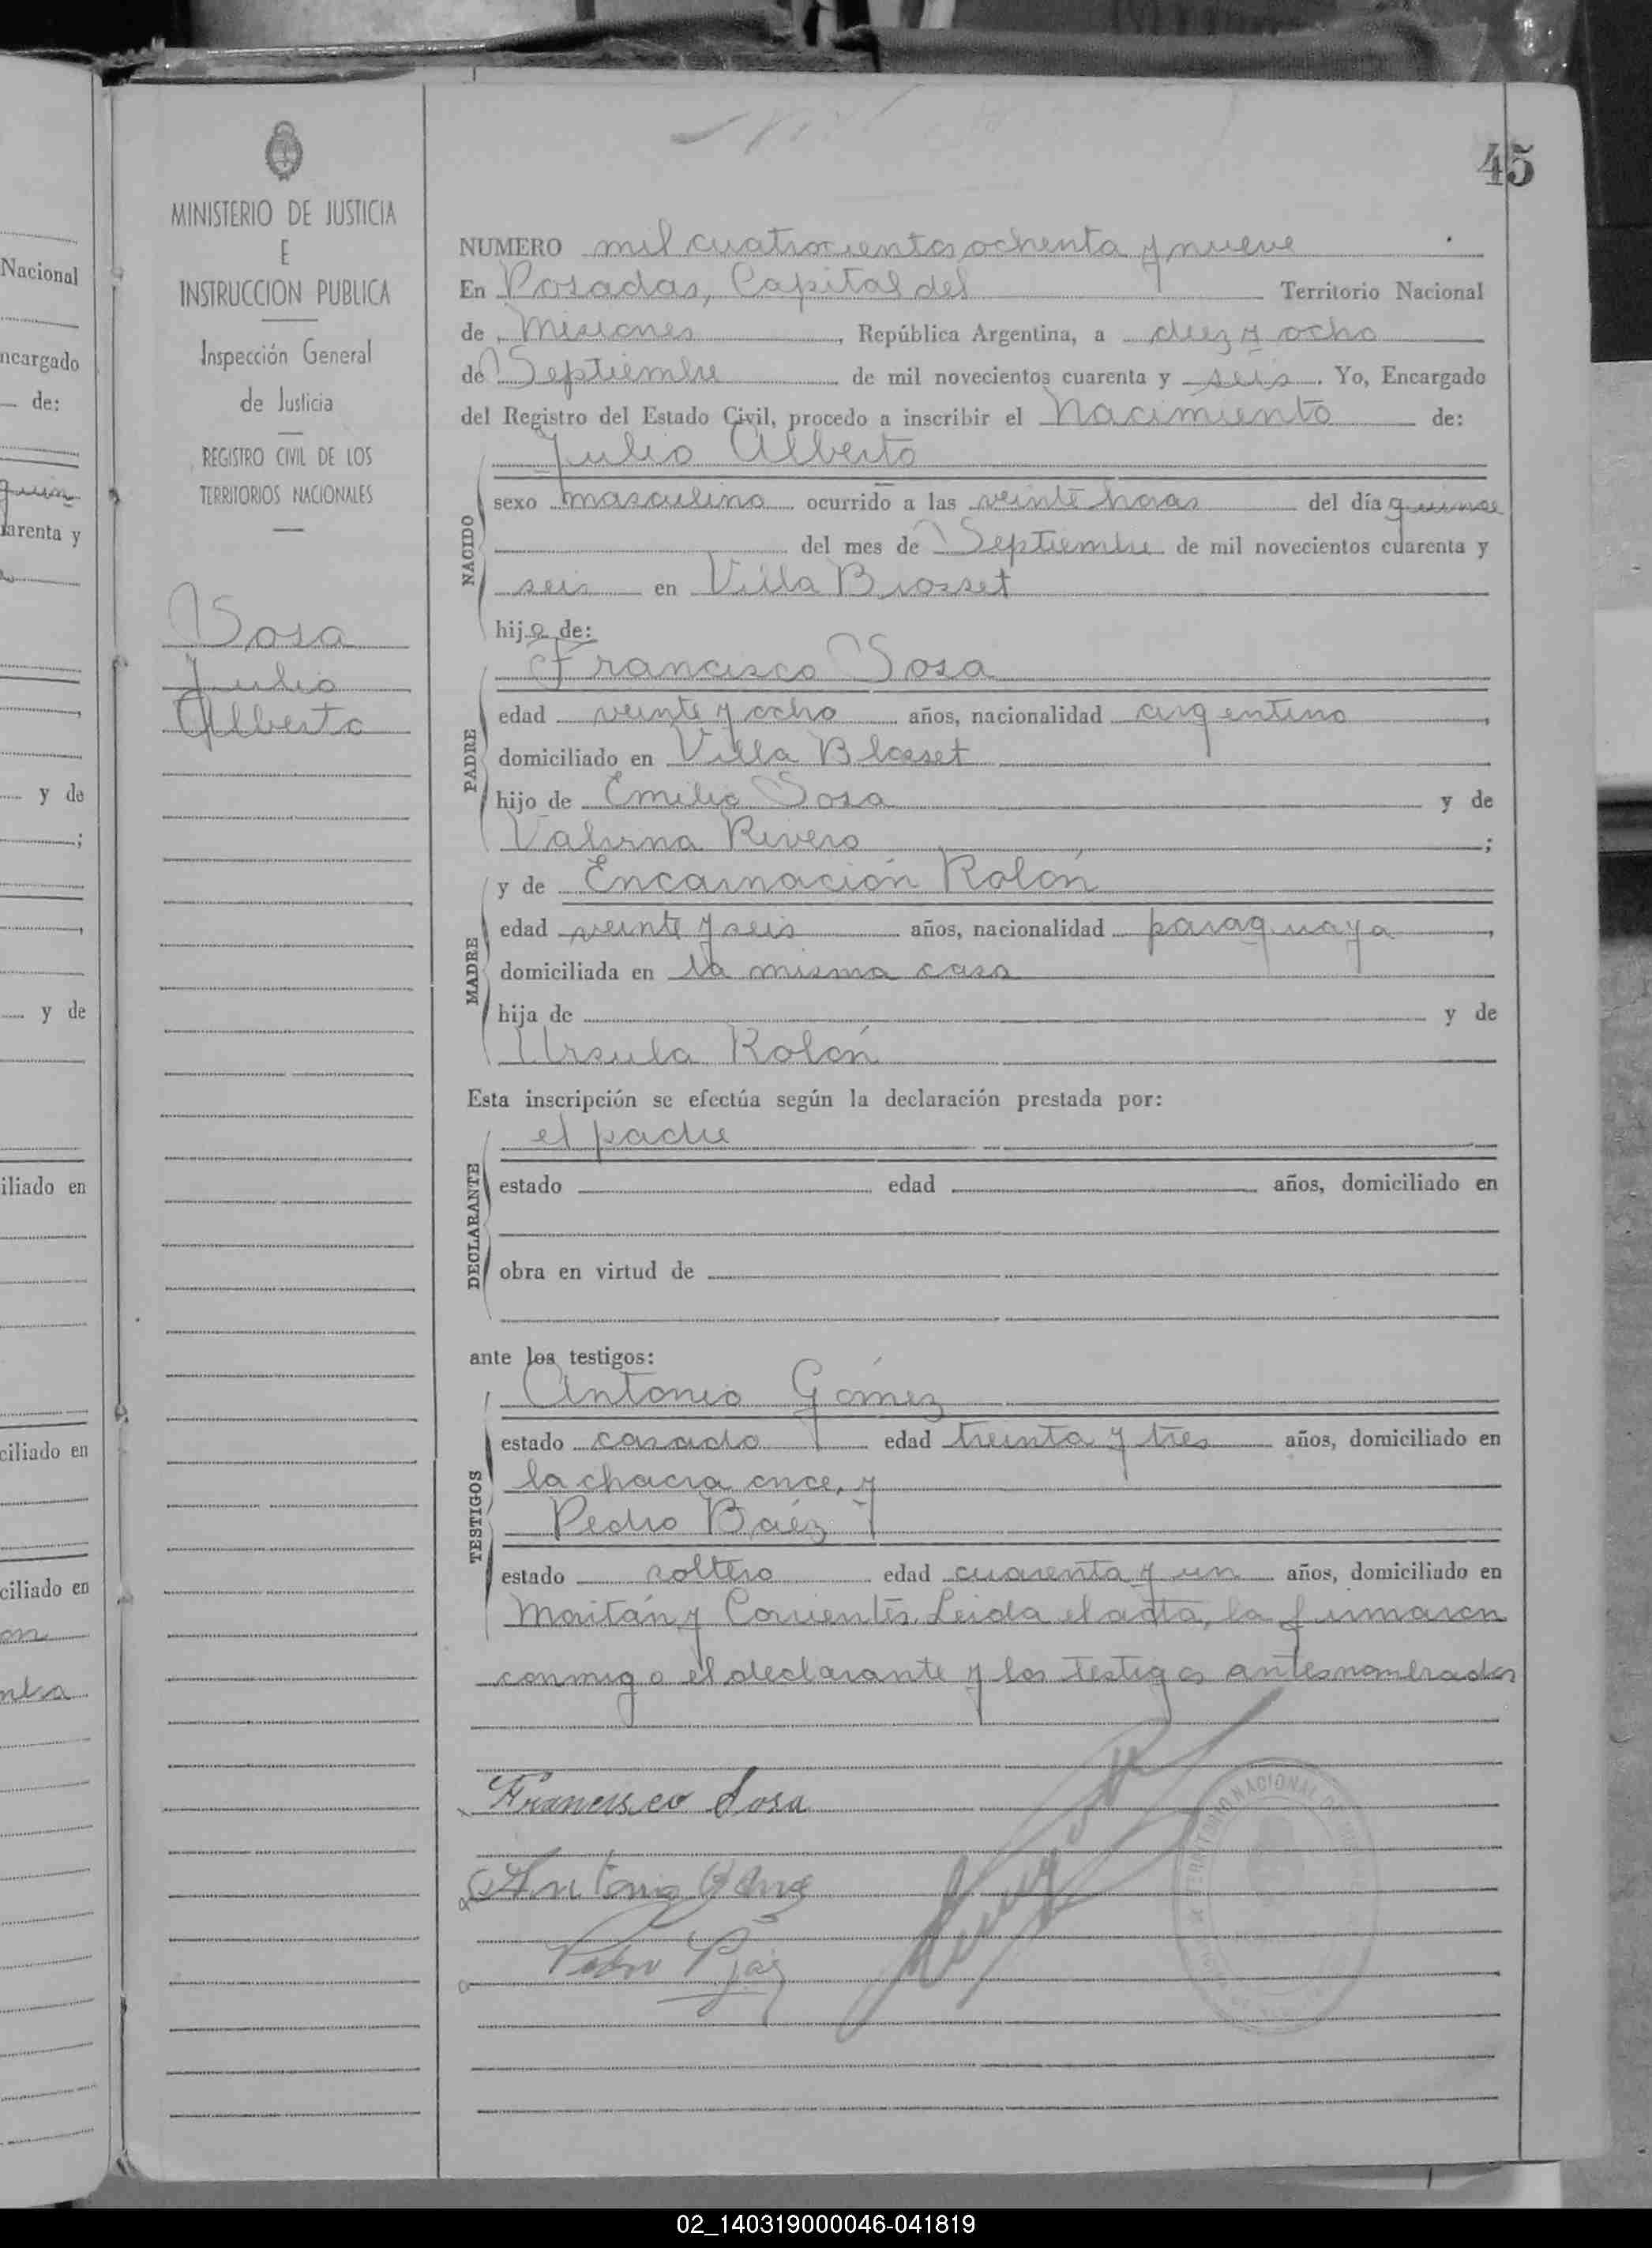 45
MINISTERIO DE JUSTICIA
E
INSTRUCCION PUBLICA
Inspección General
de Justicia
REGISTRO CIVIL DE LOS
TERRITORIOS NACIONALES
Sosa
Julio
Alberto
NUMERO mil cuatrocientos ochenta y nueve
En Posadas, Capital del Territorio Nacional
de Misiones, República Argentina, a diez y ocho
de Septiembre de mil novecientos cuarenta y seis. Yo, Encargado
del Registro del Estado Civil, procedo a inscribir el Nacimiento de:
NACIDO
Julio Alberto
sexo masculino ocurrido a las veinte horas del día quince
del mes de Septiembre de mil novecientos cuarenta y
seis en Villa Brosset
hijo de:
PADRE
Francisco Sosa
edad veinte y ocho años, nacionalidad argentino,
domiciliado en Villa Blosset
hijo de Emilio Sosa y de
Rivero;
MADRE
y de Encarnación Rolón
edad veinte y seis años, nacionalidad paraguaya,
domiciliada en la misma casa
hija de y de
Ursula Rolón
Esta inscripción se efectúa según la declaración prestada por:
DECLARANTE
el padre
estado edad años, domiciliado en
obra en virtud de
ante los testigos:
TESTIGOS
Antonio Gómez
estado casado edad treinta y tres años, domiciliado en
la chacra once, y
Pedro Báez
estado soltero edad cuarenta y un años, domiciliado en
y Corrientes. Leida el acta, la firmaron
conmigo el declarante y los testigos antesnombrados
Francisco Sosa
Antonio
Pedro
Nacional
ncargado
de:
arenta y
y de
;
y de
iliado en
ciliado en
ciliado en
02_140319000046-041819